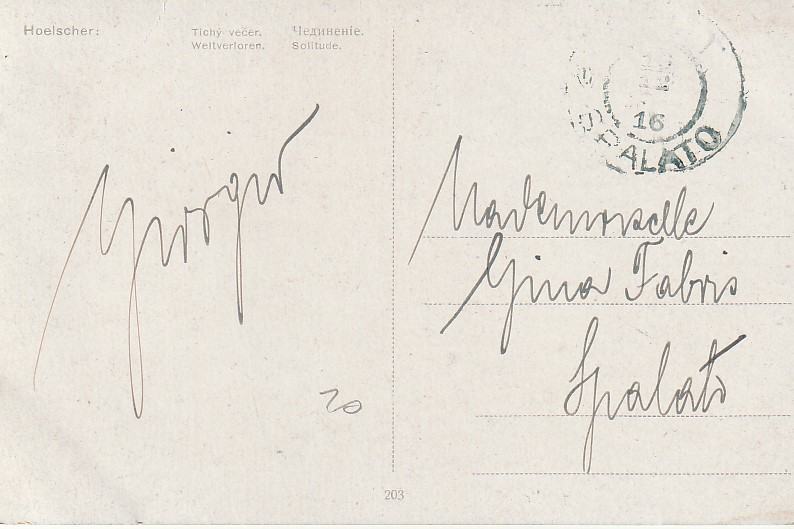 Hoelscher:
Tichý večer. Чединеніе.
Weltverloren. Solitude.
16
SPALATO
Giorgio
Mademoiselle
Gina Fabris
Spalato
20
203